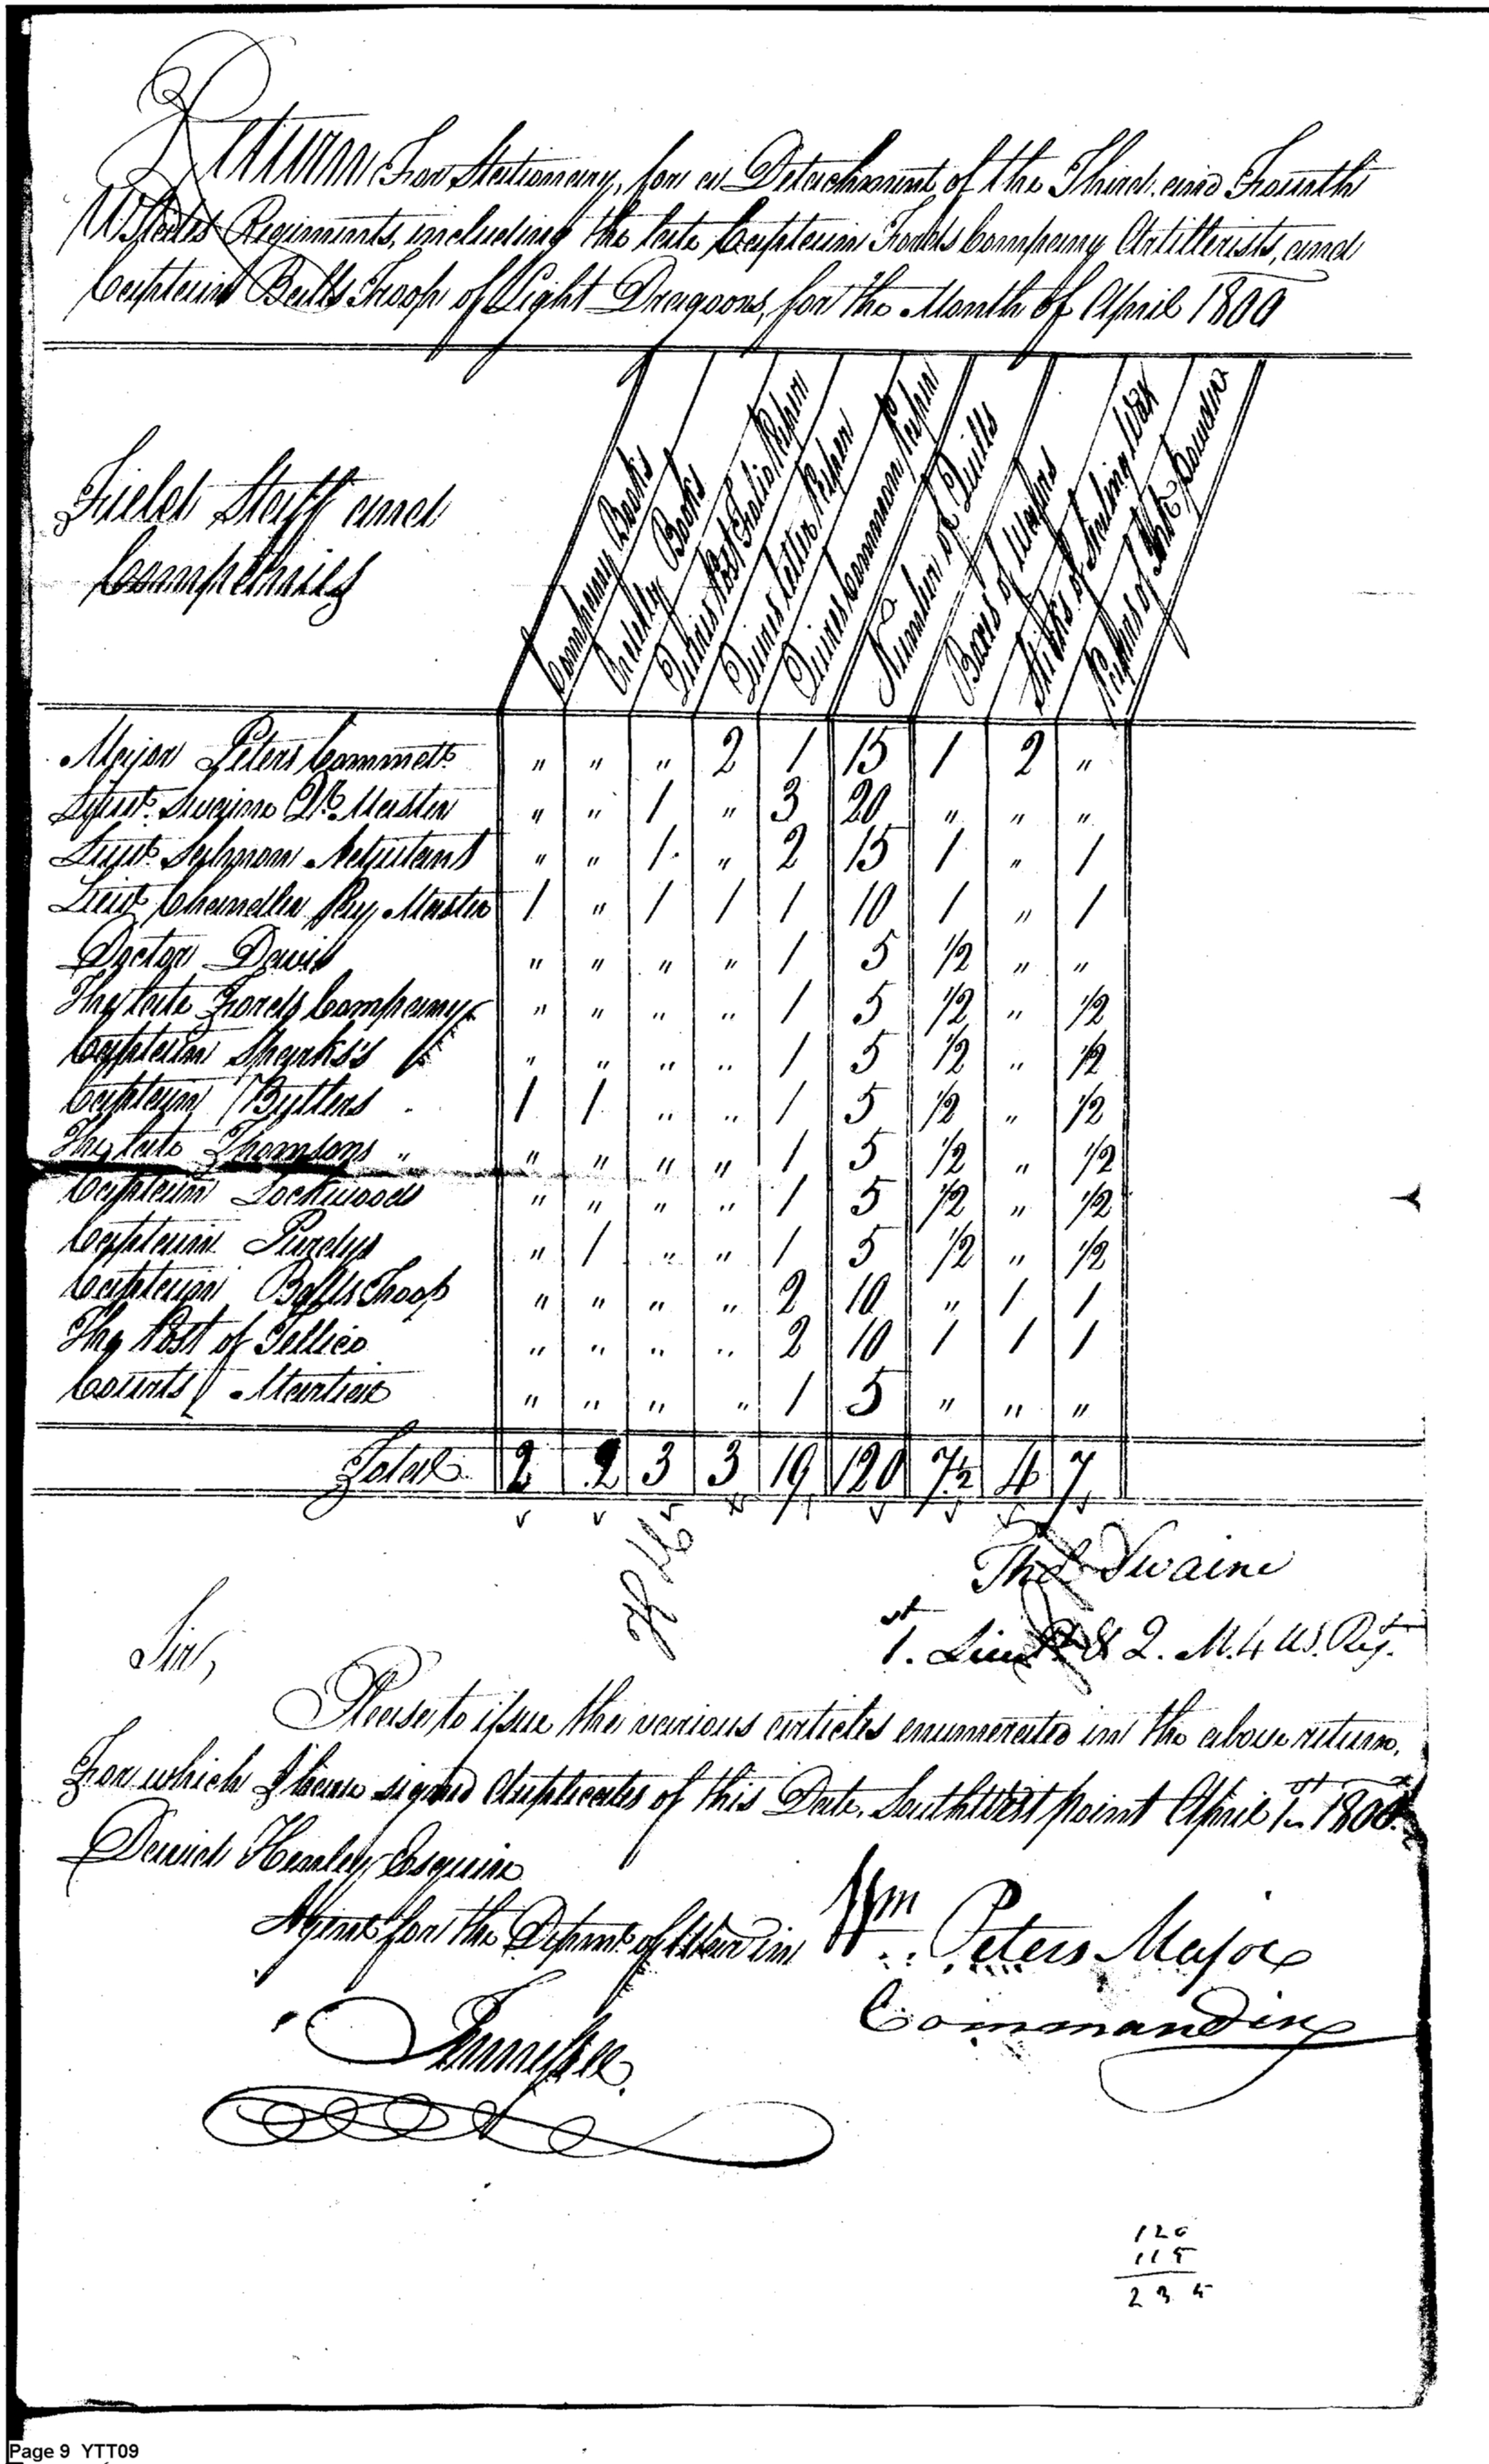 Return For Stationary, for a Detachment of the Third and Fourth
U States Regiments, including the late Captain Fords Company Artillerists, and
Captain Balls Troop of Light Dragoons, for the Month of April 1800
Field Staff and
Companies
Company Books
Orderly Books
Quires Post Folio Paper
Quires Letter Paper
Quires Common Paper
Number of Quills
Boxes of Wafers
Sticks of Sealing Wax
Papers of Ink Powder
Major Peters Commdt. " " " 2 1 15 1 2 "
Lieut. Swaine Qr. Master " " 1 " 3 20 " " "
Lieut. Adjutant " " 1 " 2 15 1 " 1
Lieut. Chandler Pay Master 1 " 1 1 1 10 1 " 1
Doctor Davis " " " " 1 5 1/2 " "
The late Fords Company " " " " 1 5 1/2 " 1/2
Captain Sparks's " " " " 1 5 1/2 " 1/2
Captain Butlers 1 1 " " 1 5 1/2 " 1/2
The late Thomsons " " " " " 1 5 1/2 " 1/2
Captain Lockwoods " " " " 1 5 1/2 " 1/2
Captain Purdys " 1 " " 1 5 1/2 " 1/2
Captain Balls Troop " " " " 2 10 " 1 1
The Post of Tellico " " " " 2 10 1 1 1
Courts Martial " " " " 1 5 " " "
Total 2 2 3 3 19 120 7½ 4 7
Thos. Swaine
1.st Lieut. & Q. M. 4 US. Regt.
Sir,
Please to issue the various articles enumerated in the above return,
For which I have signed duplicates of this Date. Southwest point April 1st 1800.
David Henley Esquire
Agent for the Departmt. of War in
Tennessee.
Wm. Peters Major
Commanding
120
115
235
Page 9 YTT09